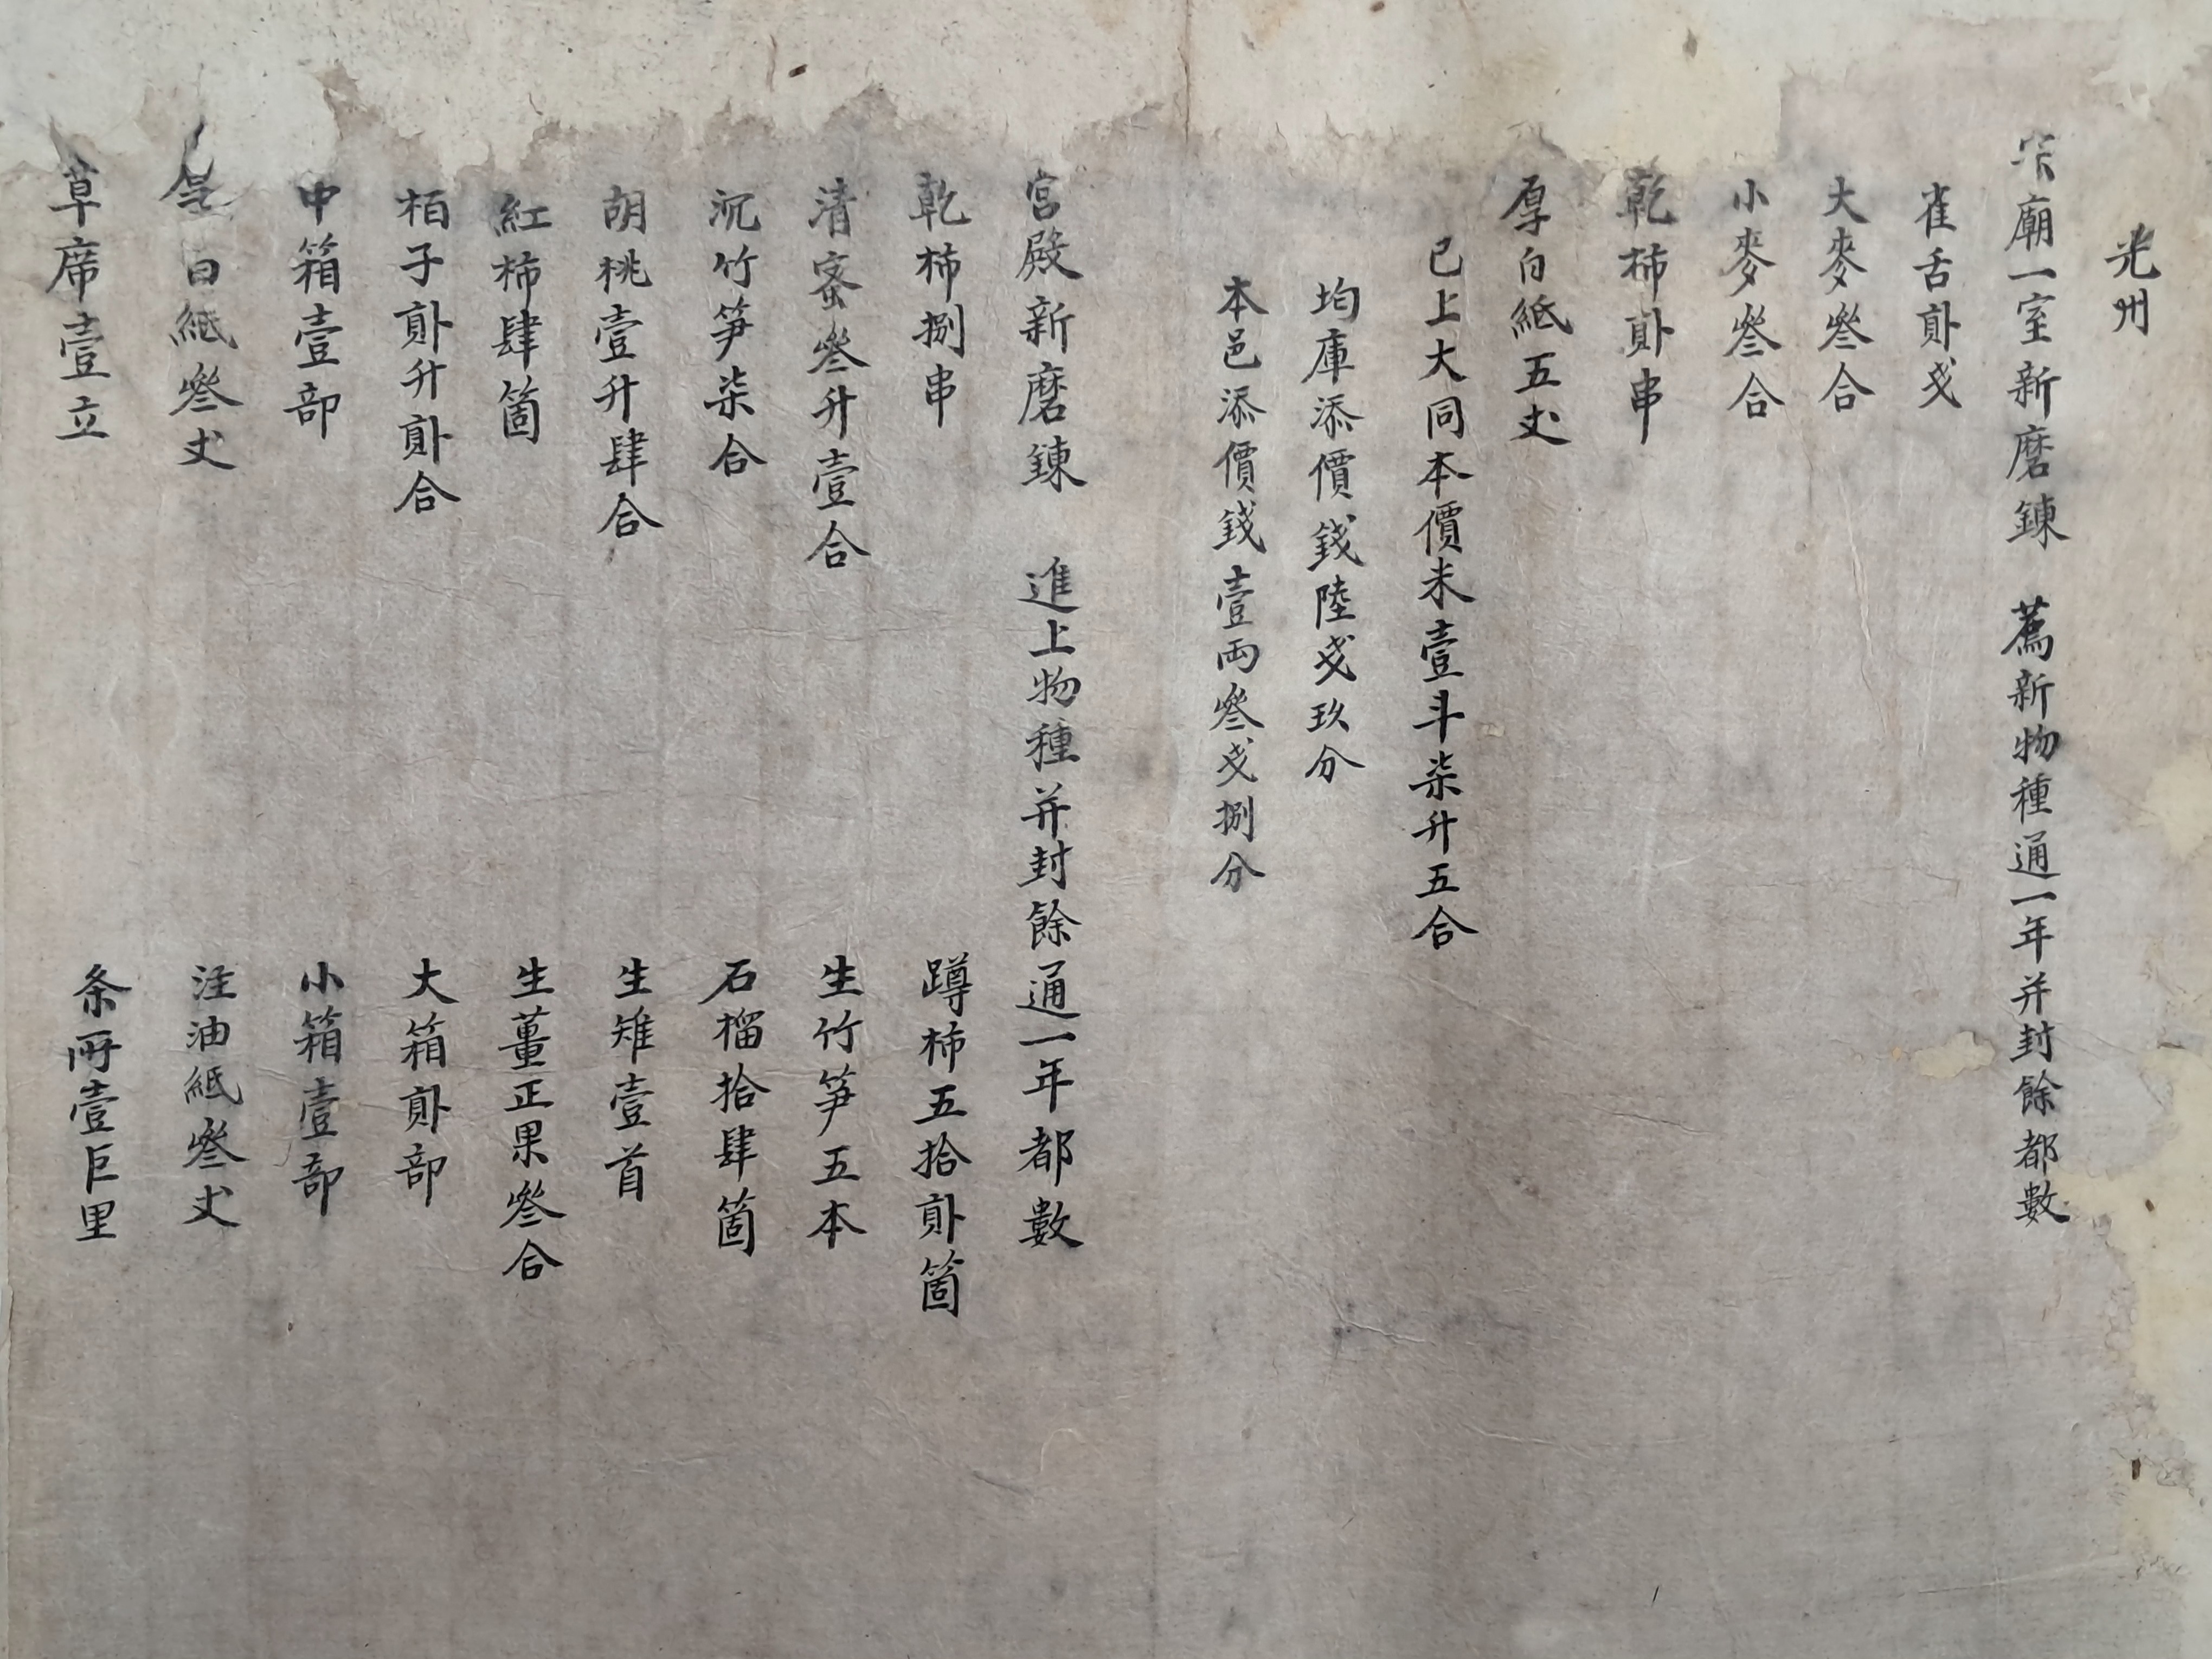 光州
宗廟一室新磨鍊 薦新物種通一年并封餘都數
雀舌貳戔
大麥叄合
小麥叄合
乾柿貳串
厚白紙五丈
已上大同本價米壹斗柒升五合
均庫添價錢陸戔玖分
本邑添價錢壹兩叄戔捌分
宮殿新磨鍊 進上物種并封餘通一年都數
乾柿捌串 蹲柿五拾貳箇
清蜜叄升壹合 生竹笋五本
沉竹笋柒合 石榴拾肆箇
胡桃壹升肆合 生雉壹首
紅柿肆箇 生薑正果叄合
栢子貳升貳合 大箱貳部
中箱壹部 小箱壹部
白紙叄丈 注油紙叄丈
草席壹立 条所壹巨里